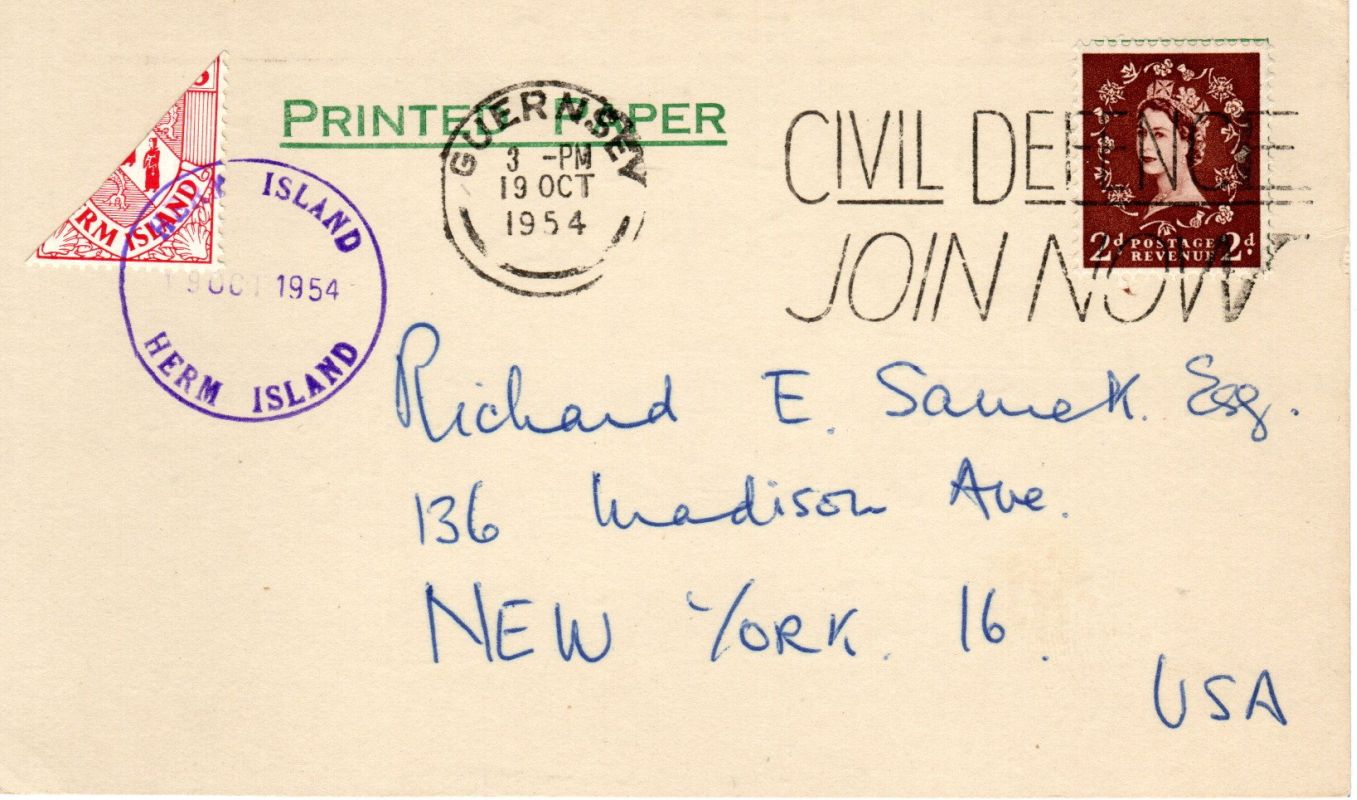 PRINTED PAPER
GUERNSEY
3 -PM
19 OCT
1954
CIVIL DEFENCE
JOIN NOW
2d POSTAGE REVENUE 2d
RM ISLAND
HERM ISLAND
19 OCT 1954
HERM ISLAND
Richard E. Samek. Esq.
136 Madison Ave.
NEW YORK. 16.
USA